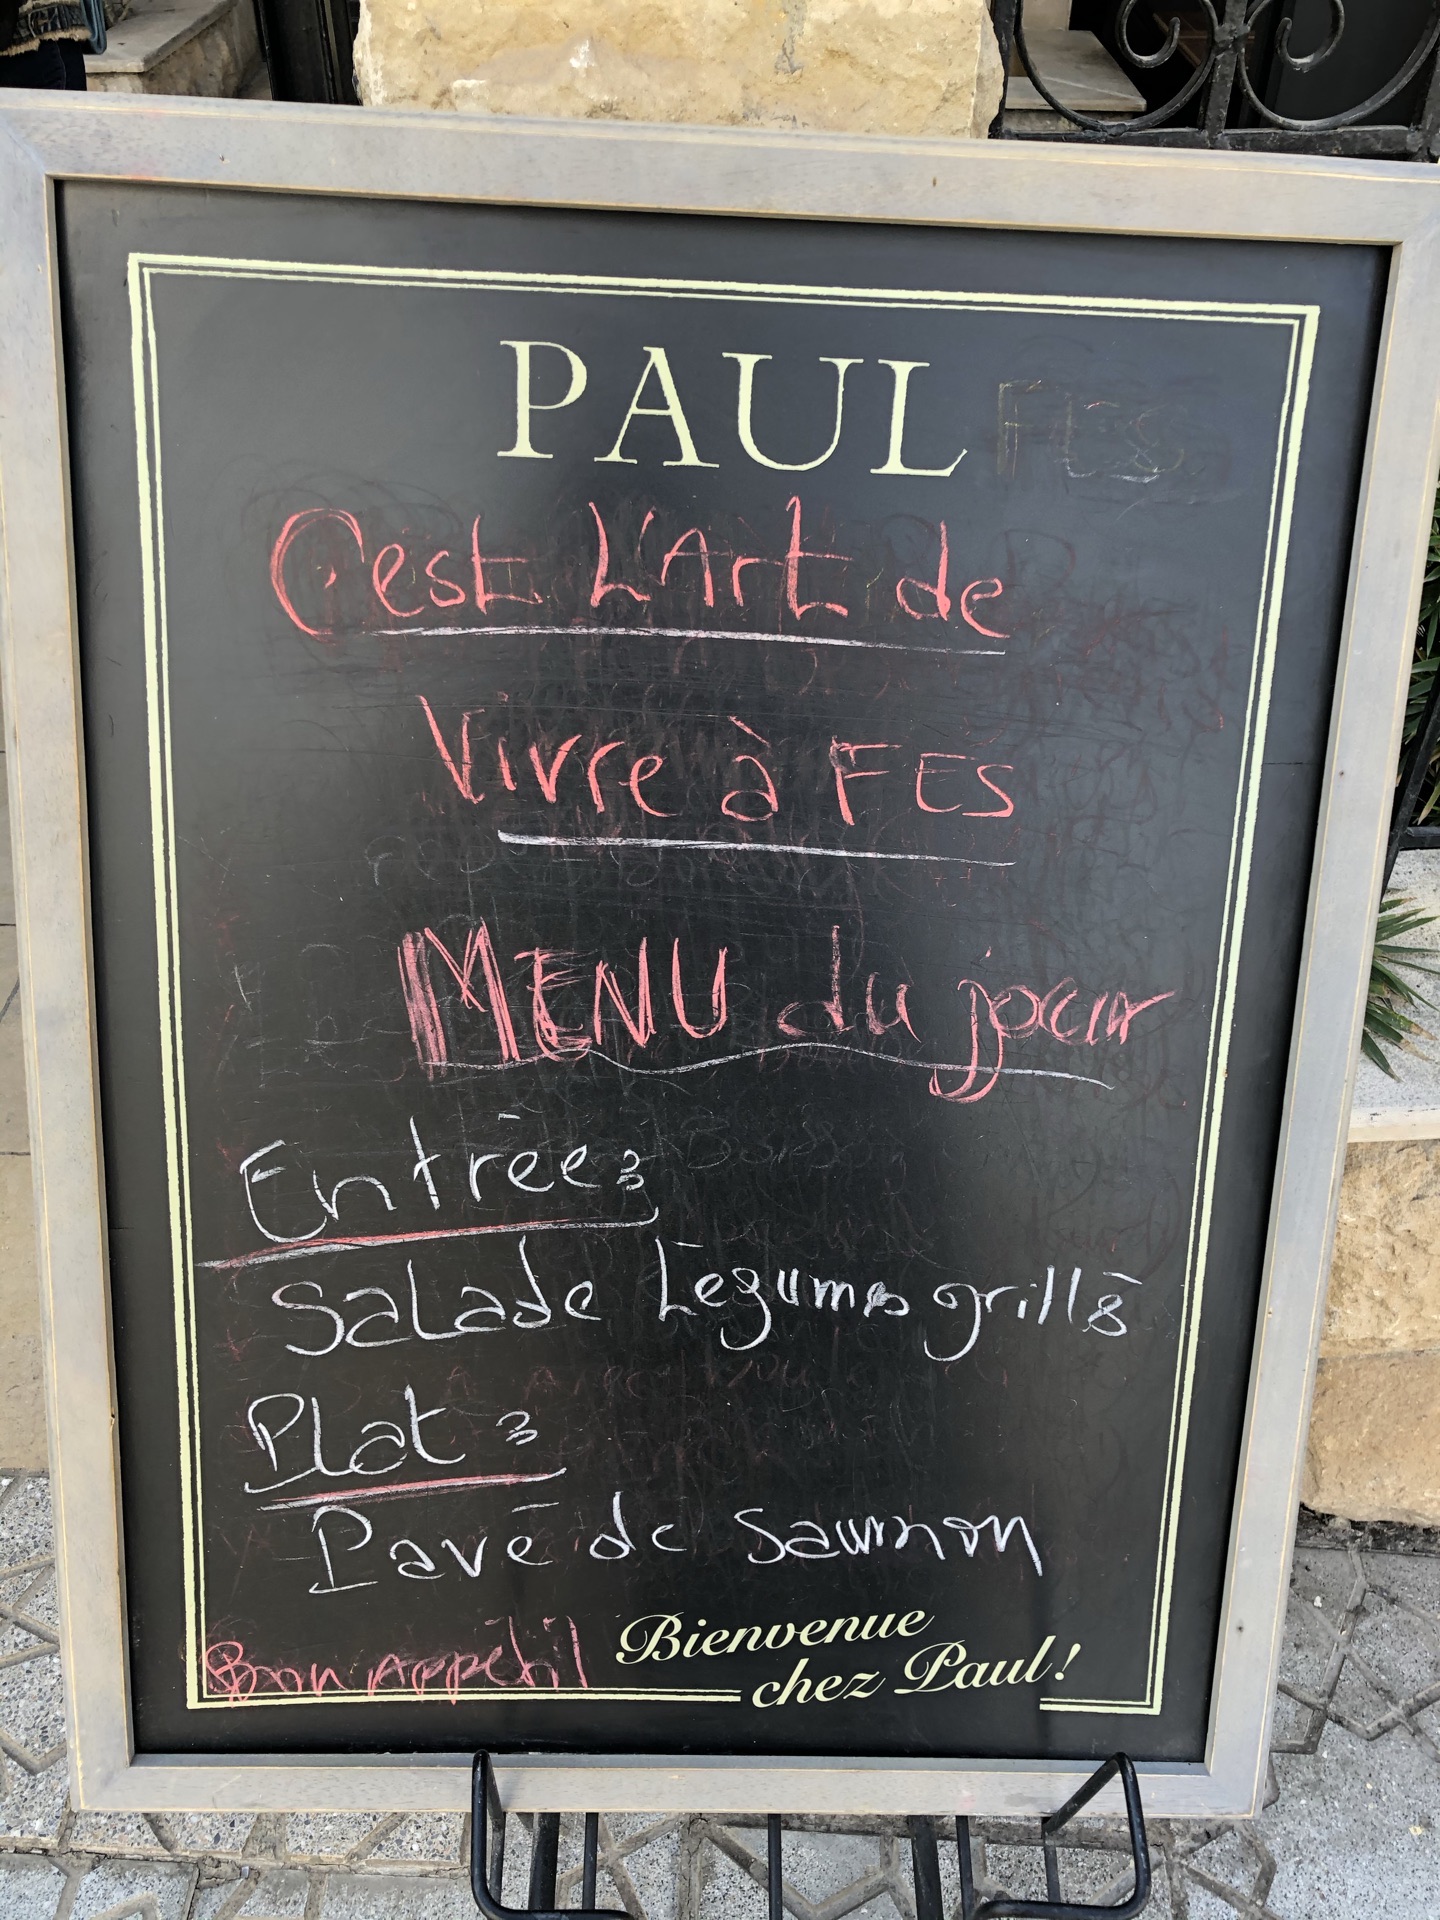 PAUL
C'est L'Art de
Vivre à FES
MENU du jour
Entrée :
Salade Légumes grillés
Plat :
Pavé de saumon
Bon Appétit
Bienvenue
chez Paul !